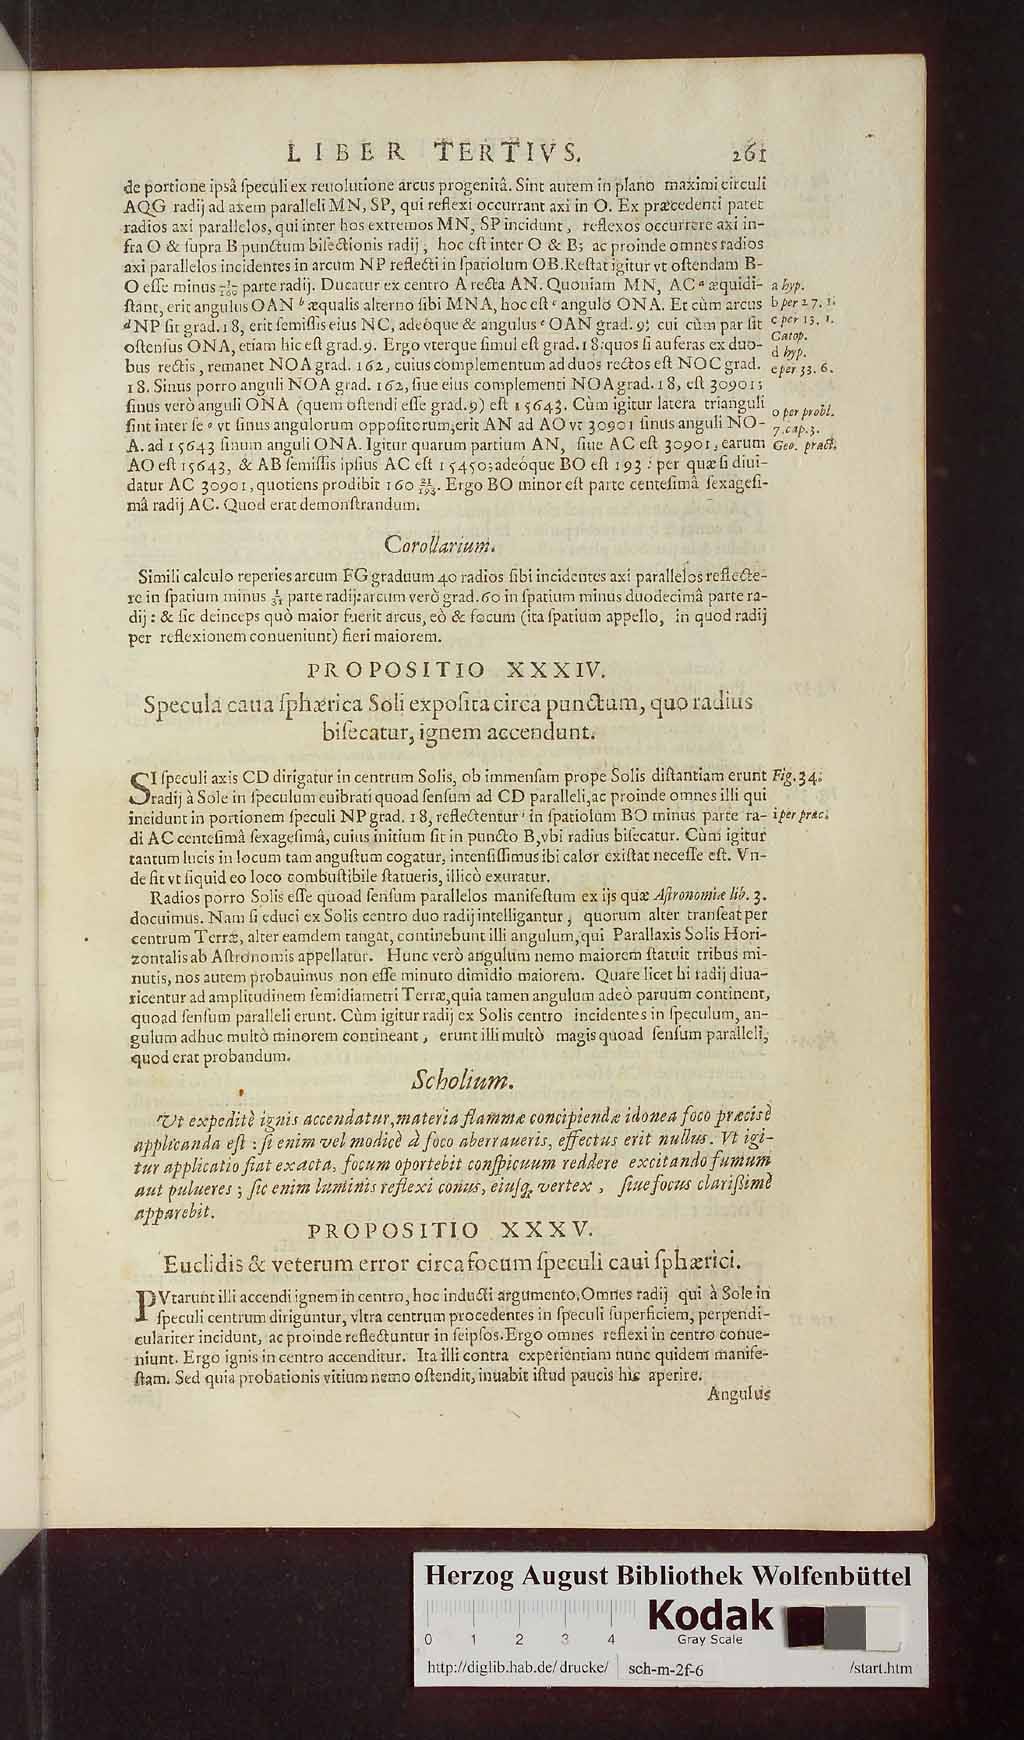 LIBER TERTIVS. 261
de portione ipsâ ſpeculi ex reuolutione arcus progenitâ. Sint autem in plano maximi circuli
AQG radij ad axem paralleli MN, SP, qui reflexi occurrant axi in O. Ex præcedenti patet
radios axi parallelos, qui inter hos extremos MN, SP incidunt, reflexos occurrere axi in-
fra O & ſupra B punctum biſectionis radij, hoc eſt inter O & B; ac proinde omnes radios
axi parallelos incidentes in arcum NP reflecti in ſpatiolum OB. Reſtat igitur vt oſtendam B-
O eſſe minus 1/160 parte radij. Ducatur ex centro A recta AN. Quoniam MN, AC a æquidi- a hyp.
ſtant, erit angulus OAN b æqualis alterno ſibi MNA, hoc eſt c angulo ONA. Et cùm arcus b per 27. 1.
d NP ſit grad. 18, erit ſemiſſis eius NC, adeóque & angulus e OAN grad. 9; cui cùm par ſit c per 13. 1. Catop.
oſtenſus ONA, etiam hic eſt grad. 9. Ergo vterque ſimul eſt grad. 18: quos ſi auferas ex duo- d hyp.
bus rectis, remanet NOA grad. 162, cuius complementum ad duos rectos eſt NOC grad. e per 33. 6.
18. Sinus porro anguli NOA grad. 162, ſiue eius complementi NOA grad. 18, eſt 30901;
ſinus verò anguli ONA (quem oſtendi eſſe grad. 9) eſt 15643. Cùm igitur latera trianguli
ſint inter ſe o vt ſinus angulorum oppoſitorum, erit AN ad AO vt 30901 ſinus anguli NO- o per probl. 7. cap. 3.
A. ad 15643 ſinum anguli ONA. Igitur quarum partium AN, ſiue AC eſt 30901, earum Geo. pract.
AO eſt 15643, & AB ſemiſſis ipſius AC eſt 15450; adeóque BO eſt 193: per quæ ſi diui-
datur AC 30901, quotiens prodibit 160 21/193. Ergo BO minor eſt parte centeſimâ ſexageſi-
mâ radij AC. Quod erat demonſtrandum.
Corollarium.
Simili calculo reperies arcum FG graduum 40 radios ſibi incidentes axi parallelos reflecte-
re in ſpatium minus 1/31 parte radij: arcum verò grad. 60 in ſpatium minus duodecimâ parte ra-
dij: & ſic deinceps quò maior fuerit arcus, eò & focum (ita ſpatium appello, in quod radij
per reflexionem conueniunt) fieri maiorem.
PROPOSITIO XXXIV.
Specula caua ſphærica Soli expoſita circa punctum, quo radius
biſecatur, ignem accendunt.
SI ſpeculi axis CD dirigatur in centrum Solis, ob immenſam prope Solis diſtantiam erunt Fig. 34.
radij à Sole in ſpeculum euibrati quoad ſenſum ad CD paralleli, ac proinde omnes illi qui
incidunt in portionem ſpeculi NP grad. 18, reflectentur i in ſpatiolum BO minus parte ra- i per præc.
di AC centeſimâ ſexageſimâ, cuius initium ſit in puncto B, vbi radius biſecatur. Cùm igitur
tantum lucis in locum tam anguſtum cogatur, intenſiſſimus ibi calor exiſtat neceſſe eſt. Vn-
de fit vt ſiquid eo loco combuſtibile ſtatueris, illicò exuratur.
Radios porro Solis eſſe quoad ſenſum parallelos manifeſtum ex ijs quæ Aſtronomiæ lib. 3.
docuimus. Nam ſi educi ex Solis centro duo radij intelligantur, quorum alter tranſeat per
centrum Terræ, alter eamdem tangat, continebunt illi angulum, qui Parallaxis Solis Hori-
zontalis ab Aſtronomis appellatur. Hunc verò angulum nemo maiorem ſtatuit tribus mi-
nutis, nos autem probauimus non eſſe minuto dimidio maiorem. Quare licet hi radij diua-
ricentur ad amplitudinem ſemidiametri Terræ, quia tamen angulum adeò paruum continent,
quoad ſenſum paralleli erunt. Cùm igitur radij ex Solis centro incidentes in ſpeculum, an-
gulum adhuc multò minorem contineant, erunt illi multò magis quoad ſenſum paralleli,
quod erat probandum.
Scholium.
Vt expeditè ignis accendatur, materia flammæ concipiendæ idonea foco præcisè
applicanda eſt: ſi enim vel modicè à foco aberraueris, effectus erit nullus. Vt igi-
tur applicatio fiat exacta, focum oportebit conſpicuum reddere excitando fumum
aut pulueres; ſic enim luminis reflexi conus, eiuſq; vertex, ſiue focus clariſſimè
apparebit.
PROPOSITIO XXXV.
Euclidis & veterum error circa focum ſpeculi caui ſphærici.
PVtarunt illi accendi ignem in centro, hoc inducti argumento. Omnes radij qui à Sole in
ſpeculi centrum diriguntur, vltra centrum procedentes in ſpeculi ſuperficiem, perpendi-
culariter incidunt, ac proinde reflectuntur in ſeipſos. Ergo omnes reflexi in centro conue-
niunt. Ergo ignis in centro accenditur. Ita illi contra experientiam nunc quidem manife-
ſtam. Sed quia probationis vitium nemo oſtendit, iuuabit iſtud paucis hîc aperire.
Angulus
Herzog August Bibliothek Wolfenbüttel
Kodak
Gray Scale
0 1 2 3 4
http://diglib.hab.de/drucke/ sch-m-2f-6 /start.htm